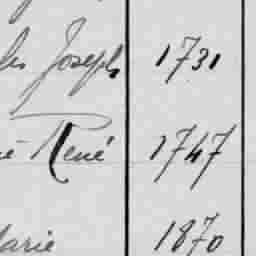 Joseph 1731
René 1747
Marie 1870